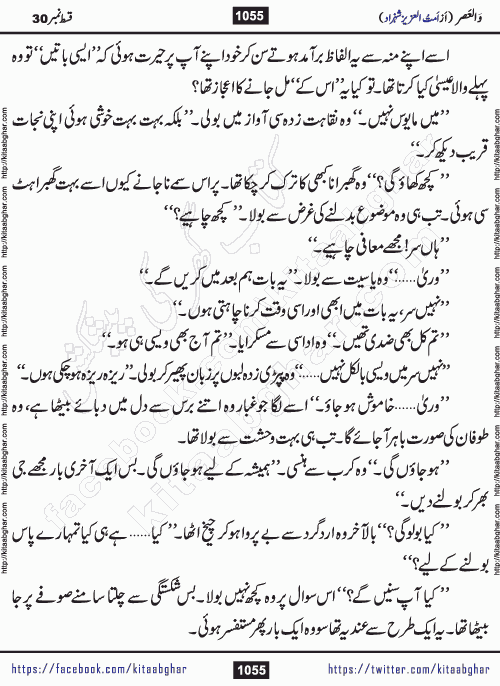 والعصر (از اَمت العزیز شہزاد) 1055 قسط نمبر 30
اسے اپنے منہ سے یہ الفاظ برآمد ہوتے سن کر خود اپنے آپ پر حیرت ہوئی کہ ’’ایسی باتیں‘‘ تو وہ
پہلے والا عیسیٰ کیا کرتا تھا۔ تو کیا یہ ’’اس کے‘‘ مل جانے کا اعجاز تھا؟
’’میں مایوس نہیں۔‘‘ وہ نقاہت زدہ سی آواز میں بولی۔ ’’بلکہ بہت بہت خوشی ہوئی اپنی نجات
قریب دیکھ کر۔‘‘
’’کچھ کھاؤ گی؟‘‘ وہ گھبرانا کبھی کا ترک کر چکا تھا۔ پر اس سمے نا جانے کیوں اسے بہت گھبراہٹ
سی ہوئی۔ تب ہی وہ موضوع بدلنے کی غرض سے بولا۔ ’’کچھ چاہیے؟‘‘
’’ہاں سر! مجھے معافی چاہیے۔‘‘
’’وریٰ......‘‘ وہ یاسیت سے بولا۔ ’’یہ بات ہم بعد میں کریں گے۔‘‘
’’نہیں سر، یہ بات میں ابھی اور اسی وقت کرنا چاہتی ہوں۔‘‘
’’تم کل بھی ضدی تھیں۔‘‘ وہ اداسی سے مسکرایا۔ ’’تم آج بھی ویسی ہی ہو۔‘‘
’’نہیں سر میں ویسی بالکل نہیں......‘‘ وہ پپڑی زدہ لبوں پر زبان پھیر کر بولی۔ ’’ریزہ ریزہ ہو چکی ہوں۔‘‘
’’وریٰ...... خاموش ہو جاؤ۔‘‘ اسے لگا جو غبار وہ اتنے برس سے دل میں دبائے بیٹھا ہے، وہ
طوفان کی صورت باہر آ جائے گا۔ تب ہی بہت وحشت سے بولا تھا۔
’’ہو جاؤں گی۔‘‘ وہ کرب سے ہنسی۔ ’’ہمیشہ کے لیے ہو جاؤں گی۔ بس ایک آخری بار مجھے جی
بھر کر بولنے دیں۔‘‘
’’کیا بولو گی؟‘‘ بالآخر وہ ارد گرد سے بے پروا ہو کر چیخ اٹھا۔ ’’کیا...... ہے ہی کیا تمہارے پاس
بولنے کے لیے؟‘‘
’’کیا آپ سنیں گے؟‘‘ اس سوال پر وہ کچھ نہیں بولا۔ بس شکستگی سے چلتا سامنے صوفے پر جا
بیٹھا تھا۔ یہ ایک طرح سے عندیہ تھا سو وہ ایک بار پھر مستفسر ہوئی۔
https://facebook.com/kitaabghar 1055 https://twitter.com/kitaabghar
http://kitaabghar.com http://kitaabghar.com http://kitaabghar.com http://kitaabghar.com http://kitaabghar.com
http://kitaabghar.com http://kitaabghar.com http://kitaabghar.com http://kitaabghar.com http://kitaabghar.com